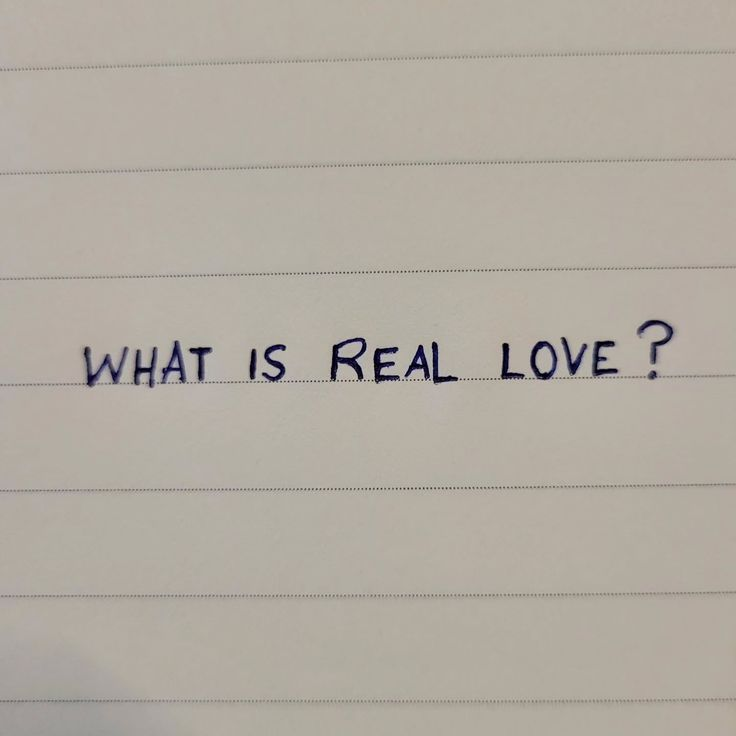 WHAT IS REAL LOVE?